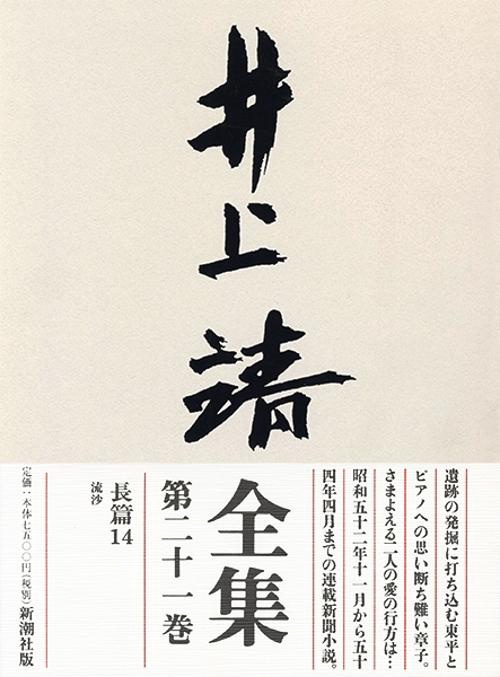 井上靖
遺跡の発掘に打ち込む東平と
ピアノへの思い断ち難い章子。
さまよえる二人の愛の行方は…
昭和五十二年十一月から五十
四年四月までの連載新聞小説。
全集
第二十一巻
長篇14
流沙
定価:本体七五〇〇円(税別)新潮社版